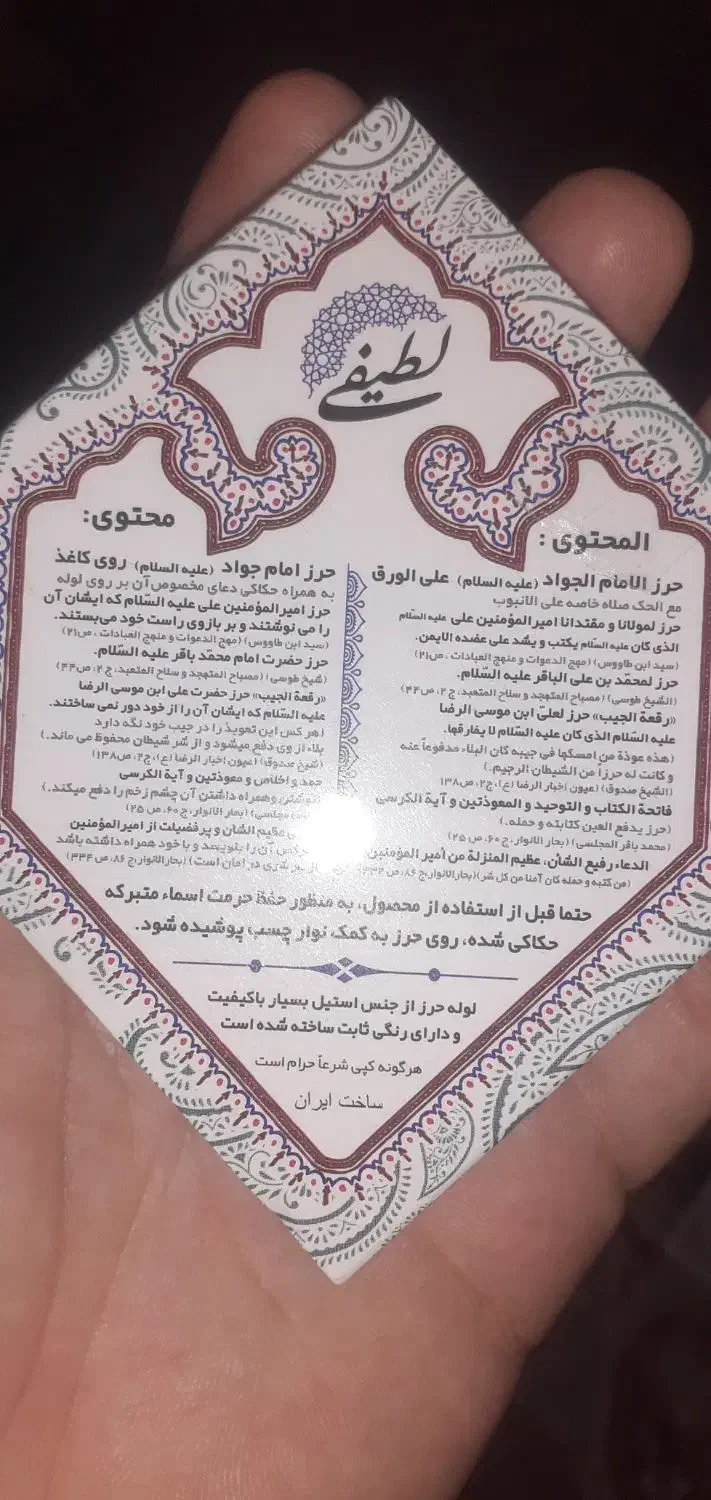 لطیفی
المحتوى:
حرز الامام الجواد (علیه السلام) على الورق
مع الحک صلاه خاصه علی الانبوب
حرز لمولانا و مقتدانا امیرالمؤمنین علی علیه السّلام
الذی کان علیه السّلام یکتب و یشد علی عضده الایمن.
(سید ابن طاووس) (مهج الدعوات و منهج العبادات ، ص۲۱)
حرز لمحمّد بن علی الباقر علیه السّلام.
(الشیخ طوسی) (مصباح المتهجد و سلاح المتعبد، ج ۲، ص۴۴)
«رقعة الجیب» حرز لعلیّ ابن موسی الرضا
علیه السّلام الذی کان علیه السّلام لا یفارقها.
(هذه عوذة من امسکها فی جیبه کان البلاء مدفوعاً عنه
و کانت له حرزاً من الشیطان الرجیم.)
(الشیخ صدوق) (عیون اخبار الرضا (ع)، ج۲، ص۱۳۸
فاتحة الکتاب و التوحید و المعوذتین و آیة الکرسی
(حرز یدفع العین کتابته و حمله.)
(محمد باقر المجلسی) (بحار الانوار، ج ۶۰، ص ۲۵)
الدعاء رفیع الشأن، عظیم المنزلة من أمیر المؤمنین
(من کتبه و حمله کان آمنا من کل شر)(بحارالانوار،ج ۸۶، ص
محتوی:
حرز امام جواد (علیه السلام) روی کاغذ
به همراه حکاکی دعای مخصوص آن بر روی لوله
حرز امیرالمؤمنین علی علیه السّلام که ایشان آن
را می نوشتند و بر بازوی راست خود می‌بستند.
(سید ابن طاووس) (مهج الدعوات و منهج العبادات ، ص۲۱)
حرز حضرت امام محمّد باقر علیه السّلام.
(شیخ طوسی) (مصباح المتهجد و سلاح المتعبد، ج ۲، ص۴۴)
«رقعة الجیب» حرز حضرت علی ابن موسی الرضا
علیه السّلام که ایشان آن را از خود دور نمی ساختند.
(هر کس این تعویذ را در جیب خود نگه دارد
بلاء از وی دفع میشود و از شر شیطان محفوظ می ماند.)
(شیخ صدوق) (عیون اخبار الرضا (ع)، ج۲، ص۱۳۸)
حمد و اخلاص و معوذتین و آیة الکرسی
وهمراه داشتن آن چشم زخم را دفع میکند.)
مجلسی) (بحار الانوار، ج ۶۰، ص ۲۵)
عظیم الشان و پرفضیلت از امیرالمؤمنین
آن را بنویسد و با خود همراه داشته باشد
شری در امان است) (بحارالانوار،ج ۸۶، ص ۳۳۴)
حتما قبل از استفاده از محصول، به منظور حفظ حرمت اسماء متبرکه
حکاکی شده، روی حرز به کمک نوار چسب پوشیده شود.
لوله حرز از جنس استیل بسیار باکیفیت
و دارای رنگی ثابت ساخته شده است
هرگونه کپی شرعاً حرام است
ساخت ایران